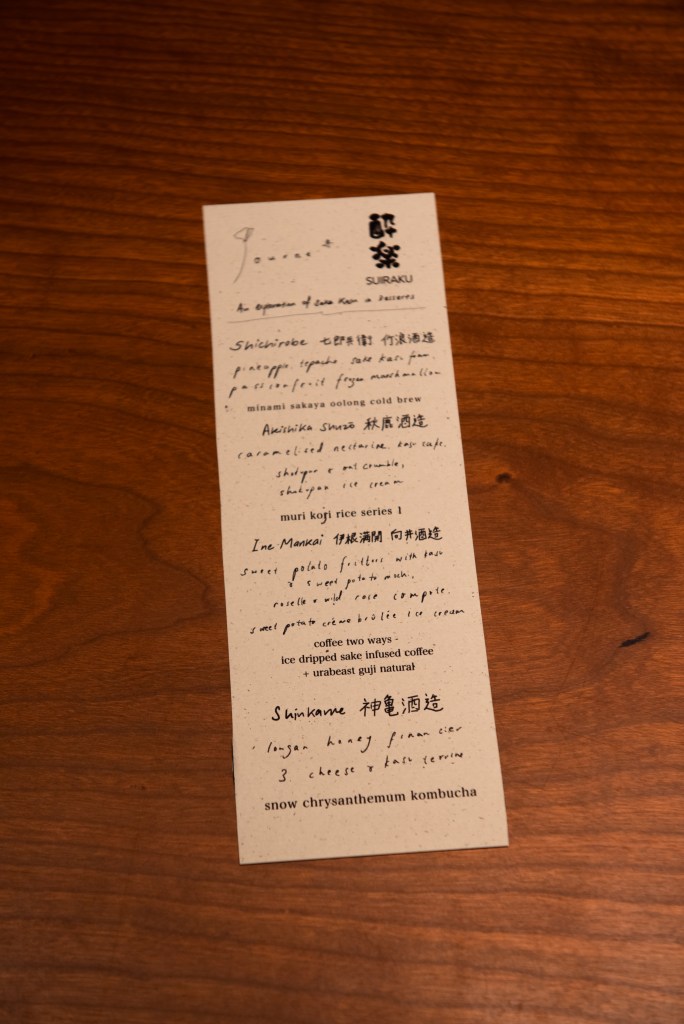 酔
楽
SUIRAKU
An exploration of Sake Kasu in desserts
Shichirobe 七郎兵衛 竹浪酒造
pineapple tepache sake kasu foam,
passionfruit frozen marshmallow
minami sakaya oolong cold brew
Akishika Shuzō 秋鹿酒造
caramelised nectarine, kasu cake,
shokupan & oat crumble,
shokupan ice cream
muri koji rice series 1
Ine Mankai 伊根満開 向井酒造
sweet potato fritters with kasu
& sweet potato mochi,
roselle & wild rose compote,
sweet potato crème brûlée ice cream
coffee two ways -
ice dripped sake infused coffee
+ urabeast guji natural
Shinkame 神亀酒造
longan honey financier
3 cheese & kasu terrine
snow chrysanthemum kombucha